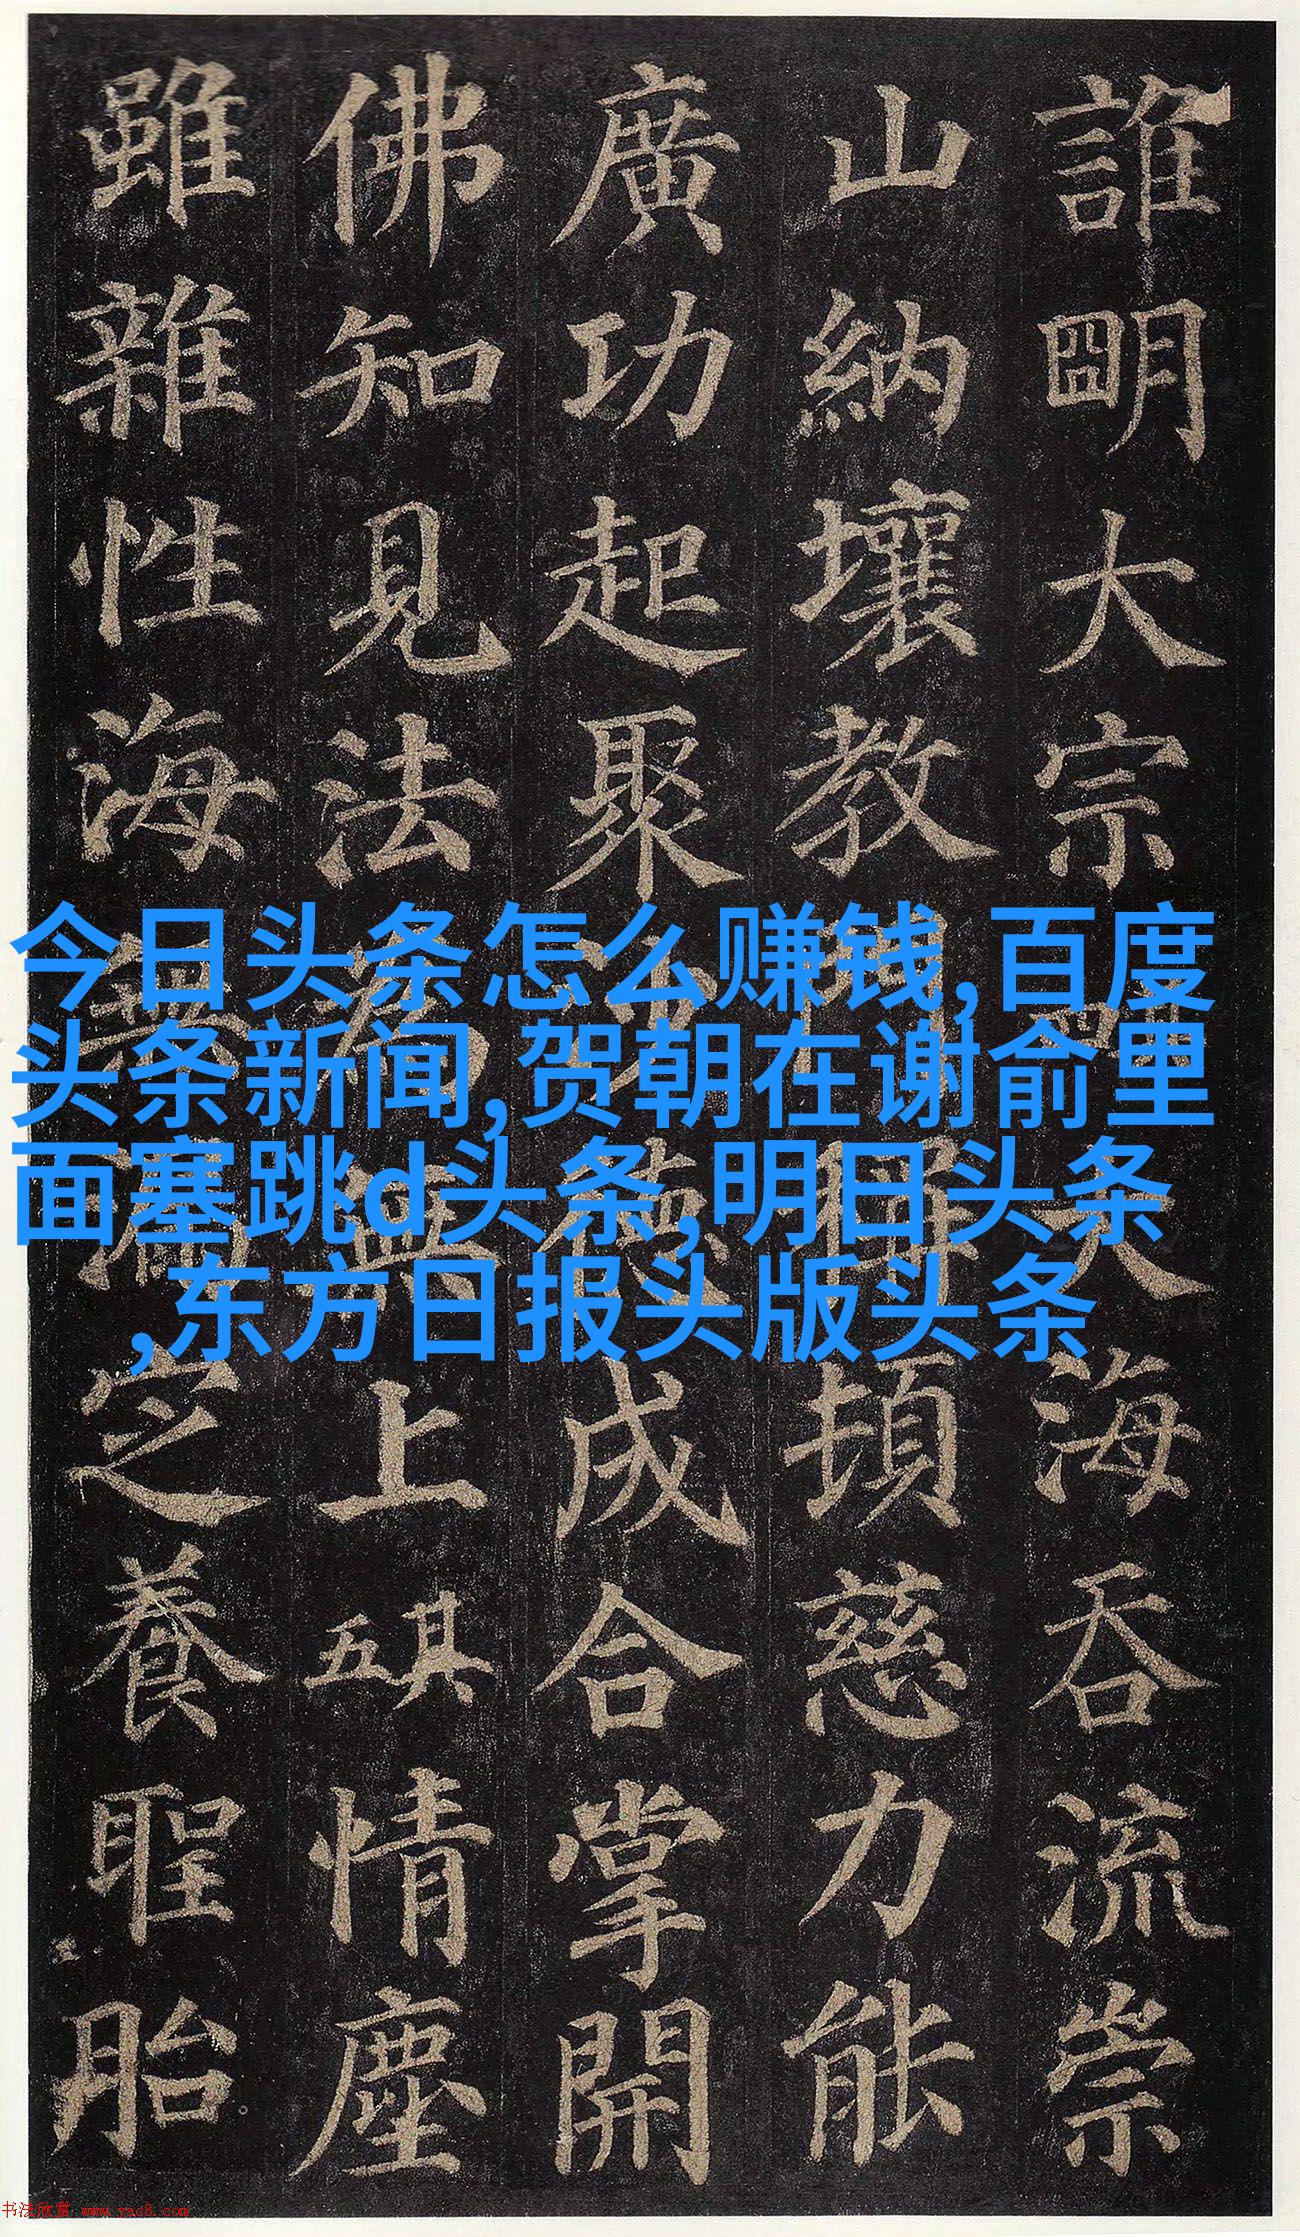 誰明大宗其四大海吞流崇
山納壤教門稱頓慈力能
廣功起聚沙德成合掌開
佛知見法為無上其五情塵
雖雜性海無漏定養聖胎
今日头条怎么赚钱,百度
头条新闻,贺朝在谢俞里
面塞跳d头条,明日头条
,东方日报头版头条
书法欣赏 www.yac8.com